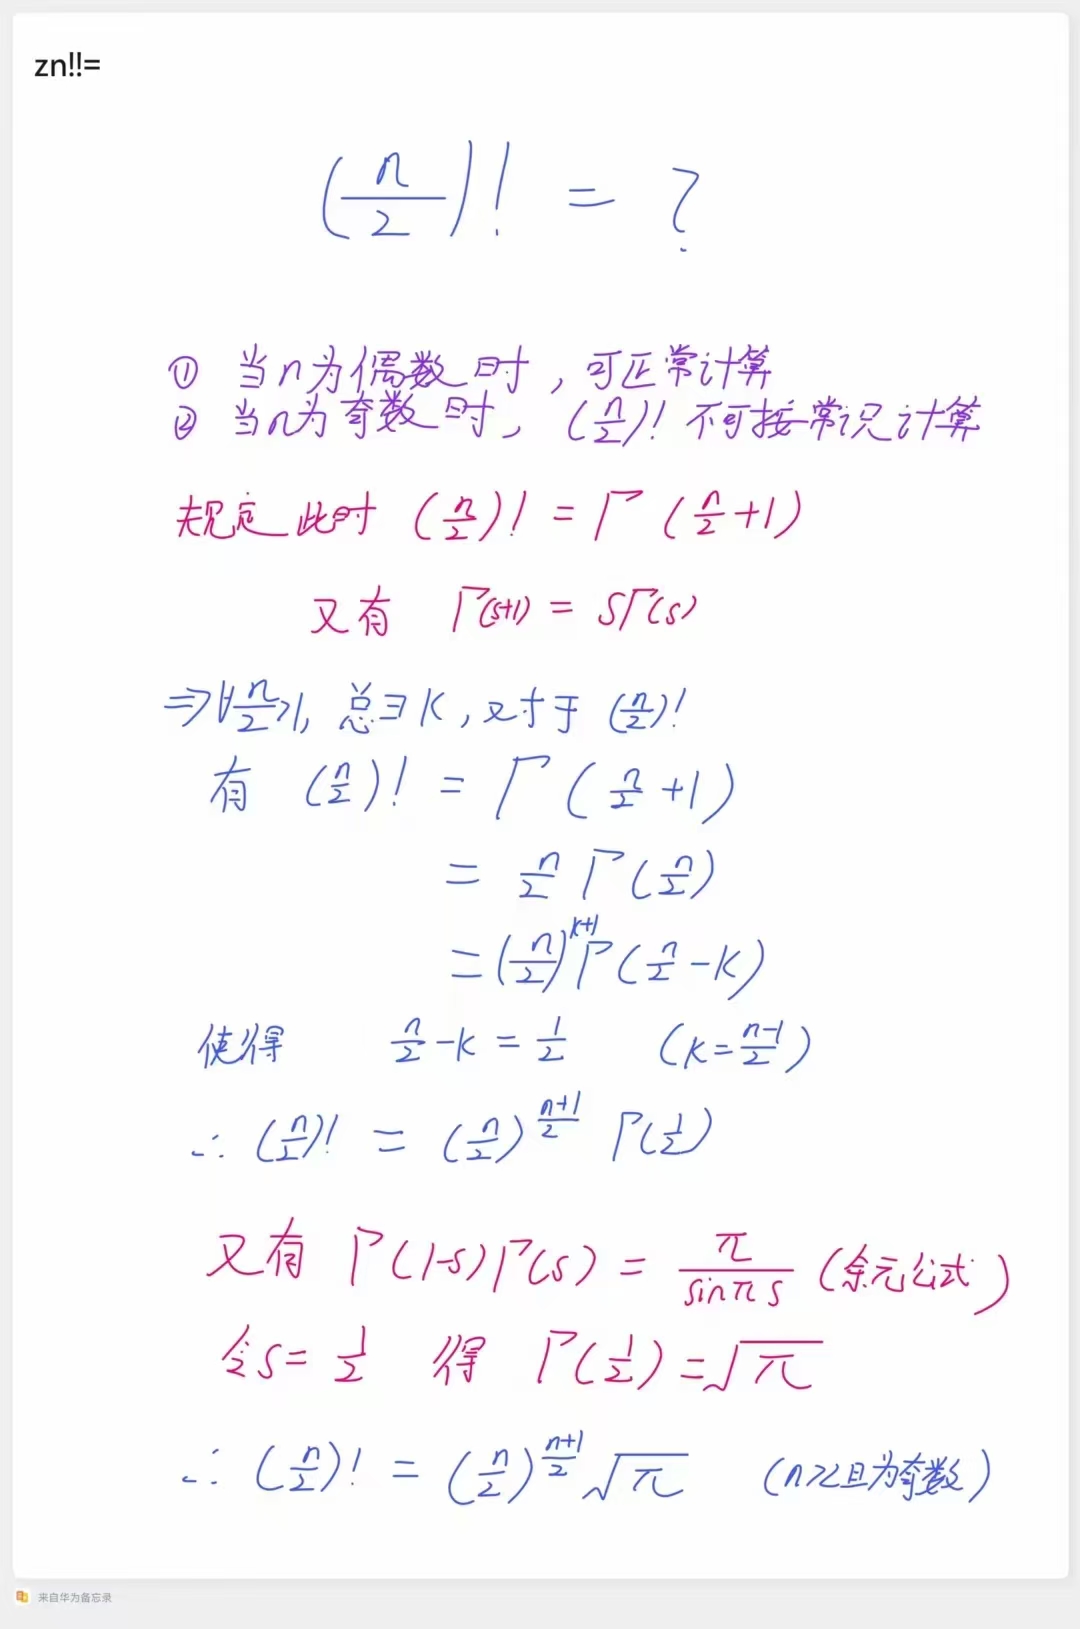 zn!!=
(n/2)! = ?
① 当n为偶数时,可正常计算
② 当n为奇数时,(n/2)! 不可按常识计算
规定此时 (n/2)! = Γ(n/2+1)
又有 Γ(s+1) = sΓ(s)
⇒∀n/2>1, 总∃K, 对于 (n/2)!
有 (n/2)! = Γ(n/2+1)
= n/2 Γ(n/2)
=(n/2)^(k+1) Γ(n/2-K)
使得 n/2-K = 1/2 (K=(n-1)/2)
∴ (n/2)! = (n/2)^((n+1)/2) Γ(1/2)
又有 Γ(1-s)Γ(s) = π/sinπs (余元公式)
令s=1/2 得 Γ(1/2)=√π
∴ (n/2)! = (n/2)^((n+1)/2) √π (n≥2且为奇数)
来自华为备忘录